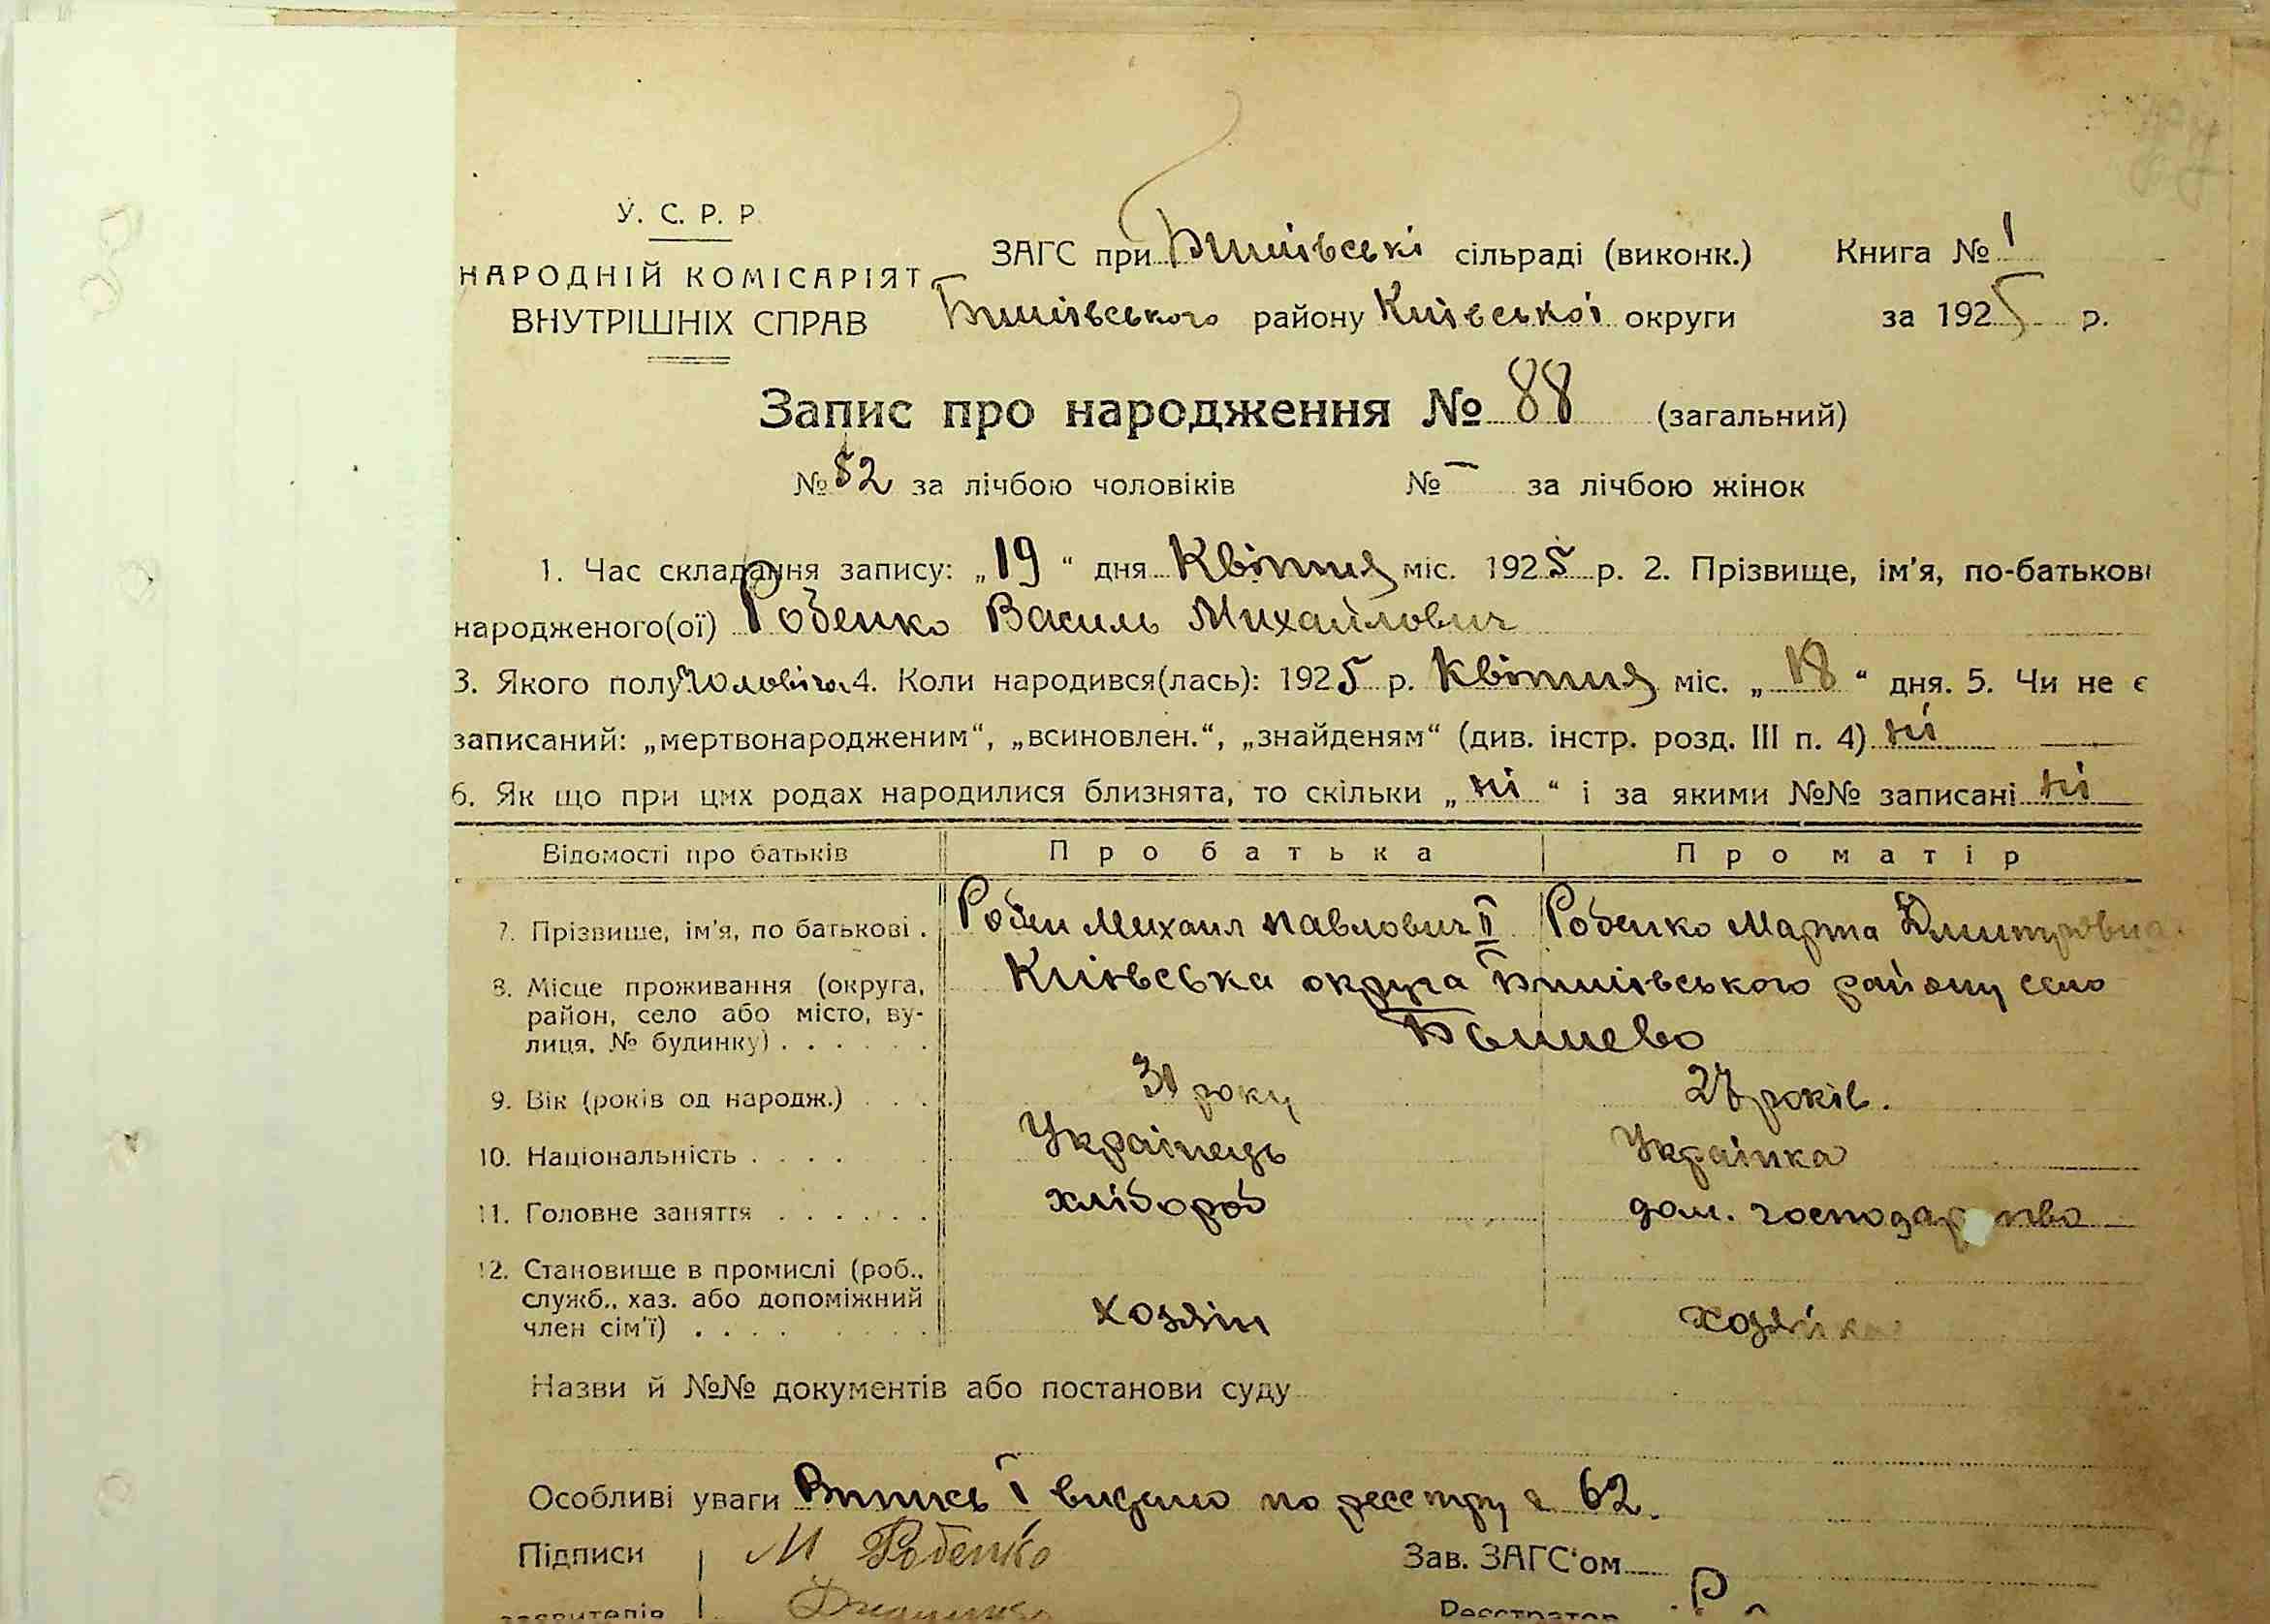 У. С. Р. Р.
НАРОДНІЙ КОМІСАРІЯТ
ВНУТРІШНІХ СПРАВ
ЗАГС при Бишівські сільраді (виконк.) Книга № 1
Бишівського району Київської округи за 1925 р.
Запис про народження № 88 (загальний)
№ 52 за лічбою чоловіків № — за лічбою жінок
1. Час складання запису: „19“ дня Квітня міс. 1925 р. 2. Прізвище, ім'я, по-батькові
народженого(ої) Робенко Василь Михайлович
3. Якого полу чоловіча 4. Коли народився(лась): 1925 р. Квітня міс. „18“ дня. 5. Чи не є
записаний: „мертвонародженим“, „всиновлен.“, „знайденям“ (див. інстр. розд. III п. 4) ні
6. Як що при цих родах народилися близнята, то скільки „ні“ і за якими №№ записані ні
Відомості про батьків Про батька Про матір
7. Прізвище, ім'я, по батькові . Робен Михаил Павлович II Робенко Марта Дмитровна
8. Місце проживання (округа, район, село або місто, вулиця, № будинку) . . . . . . Київська округа Бишівського району село
Бышево
9. Вік (років од народж.) . . . 31 року 27 років.
10. Національність . . . . Українець Українка
11. Головне заняття . . . . . . хлібороб дом. господарство
12. Становище в промислі (роб., служб., хаз. або допоміжний член сім'ї) . . . . хозяін хозяйка
Назви й №№ документів або постанови суду
Особливі уваги Випись І видано по реєстру з 62.
Підписи М Робенко Зав. ЗАГС'ом
заявителів Реєстратор